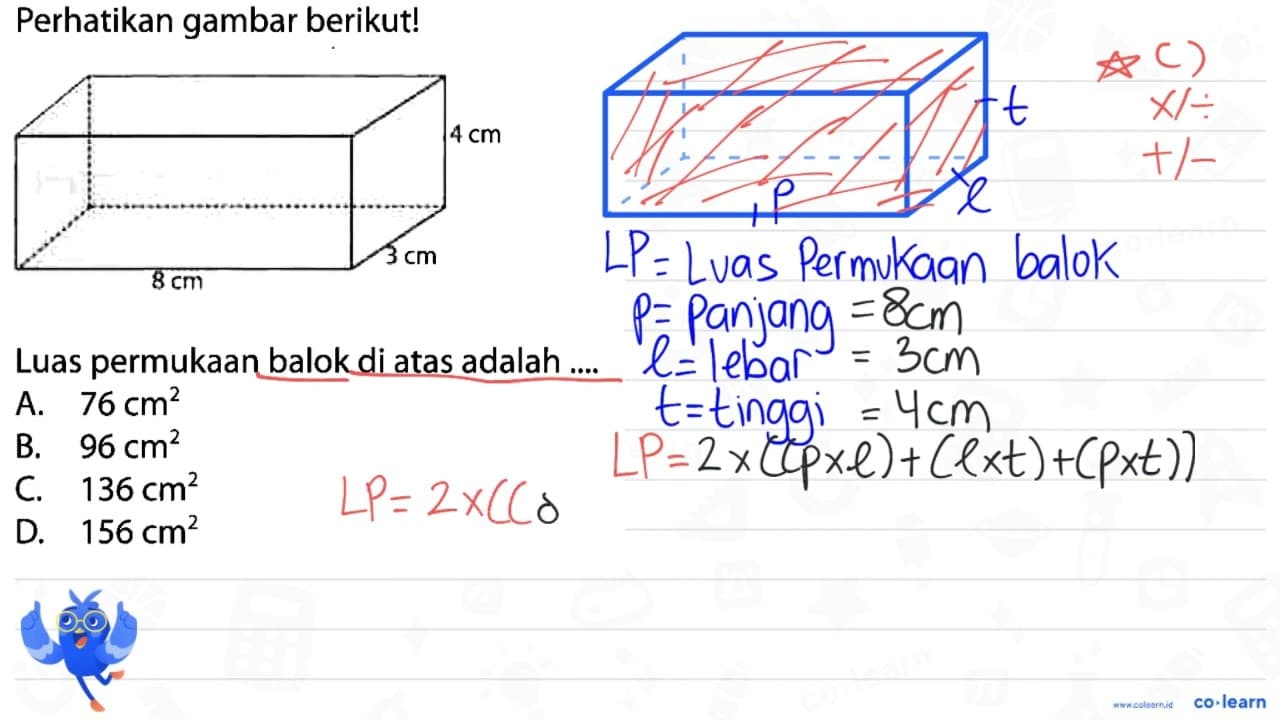 Perhatikan gambar berikut!
4 cm
3 cm
8 cm
Luas permukaan balok di atas adalah ....
A. 76 cm²
B. 96 cm²
C. 136 cm²
D. 156 cm²
LP= 2x((8
t
l
p
LP= Luas Permukaan balok
p= panjang = 8cm
l= lebar = 3cm
t= tinggi = 4cm
LP= 2x((pxl)+(lxt)+(pxt))
( )
x/÷
+/-
www.colearn.id
co·learn